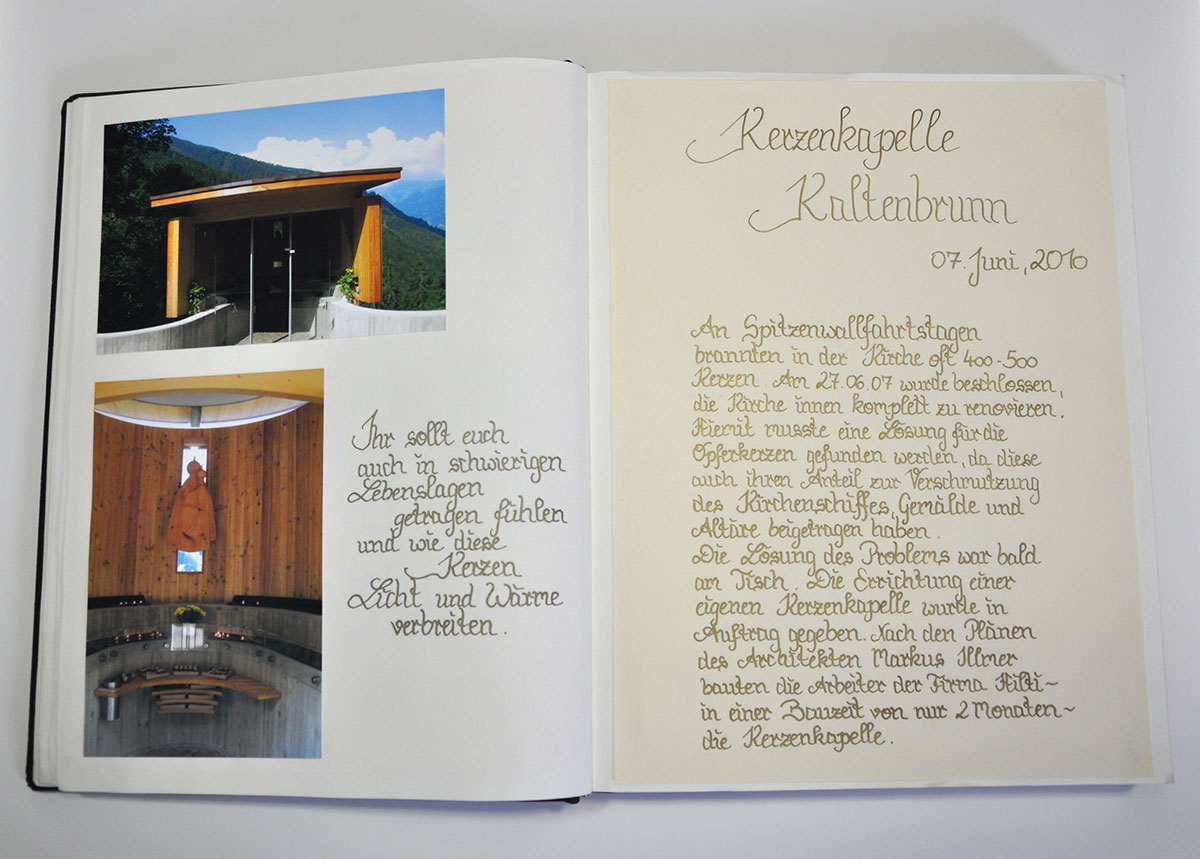 Ihr sollt euch
auch in schwierigen
Lebenslagen
getragen fühlen
und wie diese
Kerzen
Licht und Wärme
verbreiten.
Kerzenkapelle
Kaltenbrunn
07. Juni, 2010
An Spitzenwallfahrtstagen
brannten in der Kirche oft 400-500
Kerzen. Am 27.06.07 wurde beschlossen,
die Kirche innen komplett zu renovieren.
Hiemit musste eine Lösung für die
Opferkerzen gefunden werden, da diese
auch ihren Anteil zur Verschmutzung
des Kirchenschiffes, Gemälde und
Altäre beigetragen haben.
Die Lösung des Problems war bald
am Tisch. Die Errichtung einer
eigenen Kerzenkapelle wurde in
Auftrag gegeben. Nach den Plänen
des Architekten Markus Illmer
bauten die Arbeiter der Firma Hilti~
in einer Bauzeit von nur 2 Monaten~
die Kerzenkapelle.